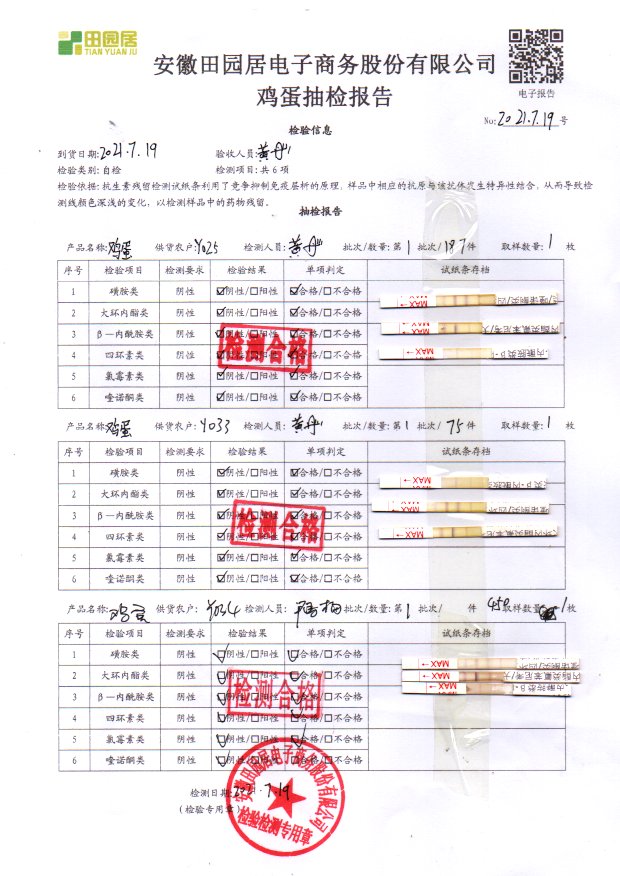 田园居
TIAN YUAN JU
安徽田园居电子商务股份有限公司
鸡蛋抽检报告
电子报告
No:2021.7.19号
检验信息
到货日期:2021.7.19 验收人员:黄丹
检验类别:自检 检测项目:共6项
检验依据:抗生素残留检测试纸条利用了竞争抑制免疫层析的原理，样品中相应的抗原与该抗体发生特异性结合，从而导致检
测线颜色深浅的变化，以检测样品中的药物残留。
抽检报告
产品名称:鸡蛋 供货农户:Y025 检测人员:黄丹 批次/数量:第1批次/187件 取样数量:1枚
序号 检验项目 检测要求 检验结果 单项判定 试纸条存档
1 磺胺类 阴性 ☑阴性/☐阳性 ☑合格/☐不合格
2 大环内酯类 阴性 ☑阴性/☐阳性 ☑合格/☐不合格
3 β—内酰胺类 阴性 ☑阴性/☐阳性 ☑合格/☐不合格
4 四环素类 阴性 ☑阴性/☐阳性 ☑合格/☐不合格
5 氯霉素类 阴性 ☑阴性/☐阳性 ☑合格/☐不合格
6 喹诺酮类 阴性 ☑阴性/☐阳性 ☑合格/☐不合格
MAX
MAX
MAX
检测合格
产品名称:鸡蛋 供货农户:Y033 检测人员:黄丹 批次/数量:第1批次/75件 取样数量:1枚
序号 检验项目 检测要求 检验结果 单项判定 试纸条存档
1 磺胺类 阴性 ☑阴性/☐阳性 ☑合格/☐不合格
2 大环内酯类 阴性 ☑阴性/☐阳性 ☑合格/☐不合格
3 β—内酰胺类 阴性 ☑阴性/☐阳性 ☑合格/☐不合格
4 四环素类 阴性 ☑阴性/☐阳性 ☑合格/☐不合格
5 氯霉素类 阴性 ☑阴性/☐阳性 ☑合格/☐不合格
6 喹诺酮类 阴性 ☑阴性/☐阳性 ☑合格/☐不合格
MAX
MAX
MAX
检测合格
产品名称:鸡蛋 供货农户: 检测人员: 批次/数量:第1批次/ 件 450 取样数量: 1枚
序号 检验项目 检测要求 检验结果 单项判定 试纸条存档
1 磺胺类 阴性 ☑阴性/☐阳性 ☑合格/☐不合格
2 大环内酯类 阴性 ☑阴性/☐阳性 ☑合格/☐不合格
3 β—内酰胺类 阴性 ☑阴性/☐阳性 ☑合格/☐不合格
4 四环素类 阴性 ☑阴性/☐阳性 ☑合格/☐不合格
5 氯霉素类 阴性 ☑阴性/☐阳性 ☑合格/☐不合格
6 喹诺酮类 阴性 ☑阴性/☐阳性 ☑合格/☐不合格
MAX
MAX
MAX
检测合格
检测日期:2021.7.19
(检验专用章)
安徽田园居电子商务股份有限公司
检验检测专用章